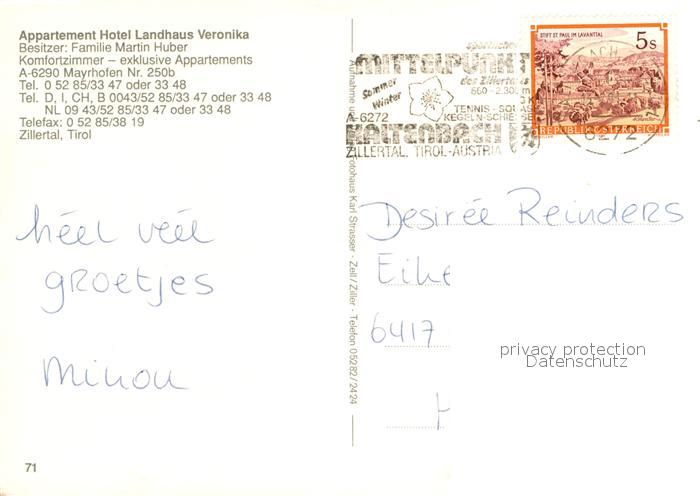 Appartement Hotel Landhaus Veronika
Besitzer: Familie Martin Huber
Komfortzimmer – exklusive Appartements
A-6290 Mayrhofen Nr. 250b
Tel. 0 52 85/33 47 oder 33 48
Tel. D, I, CH, B 0043/52 85/33 47 oder 33 48
NL 09 43/52 85/33 47 oder 33 48
Telefax: 0 52 85/38 19
Zillertal, Tirol
héél véél
groetjes
Minou
71
Karl Strasser - Zell/Ziller - Telefon 05282/2424
MITTELPUNKT
des Zillertals
Sommer
Winter
TENNIS - SQUAS
KEGELN-SCHIE
A-6272
KALTENBACH
ZILLERTAL, TIROL-AUSTRIA
STIFT ST. PAUL IM LAVANTTAL
5 S
REPUBLIK ÖSTERREICH
6272
Desirée Reinders
Eike
6417
H
privacy protection
Datenschutz